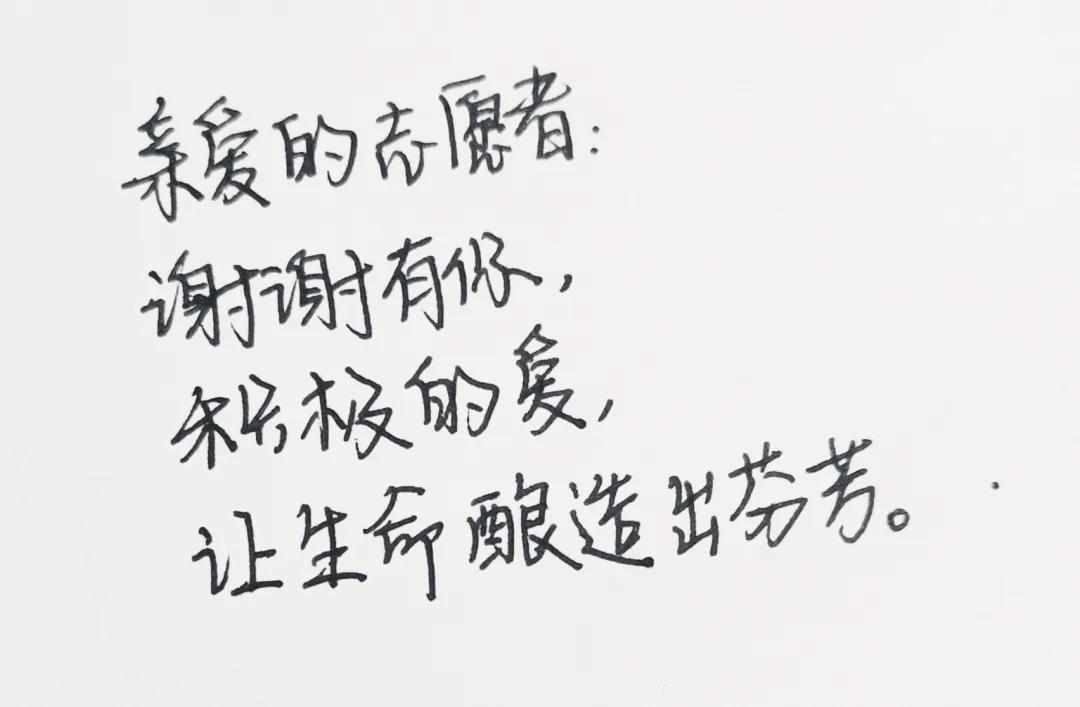 亲爱的志愿者：
谢谢有你，
积极的爱，
让生命酿造出芬芳。